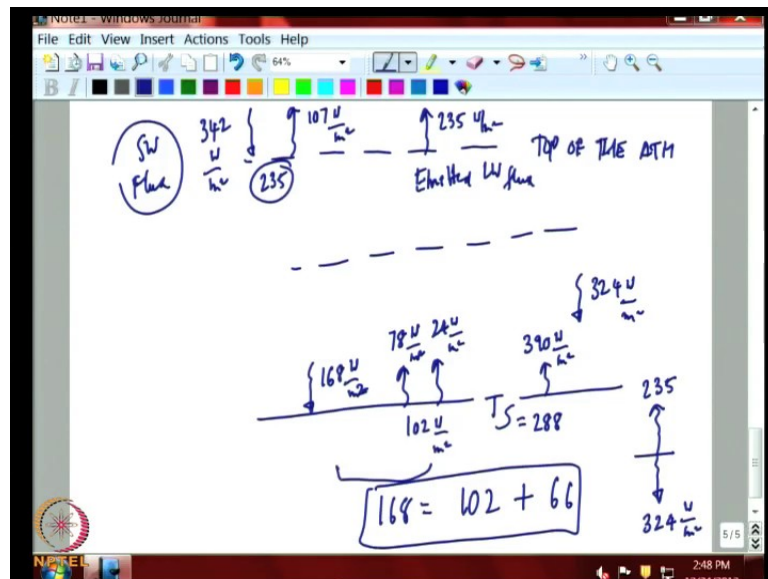 Note1 - Windows Journal
File Edit View Insert Actions Tools Help
64%
B I
SW
Flux
342
W
m²
107 W
m²
235 W/m²
235
Emitted LW flux
TOP OF THE ATM
324 W
m²
168 W
m²
78 W
m²
24 W
m²
390 W
m²
102 W
m²
TS = 288
235
324 W
m²
168 = 102 + 66
5/5
NPTEL
2:48 PM